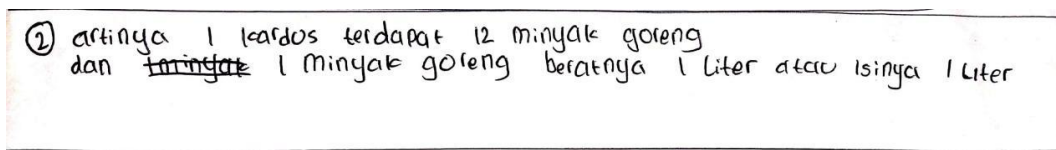 ② artinya 1 kardus terdapat 12 minyak goreng
dan 1 minyak goreng beratnya 1 Liter atau isinya 1 Liter